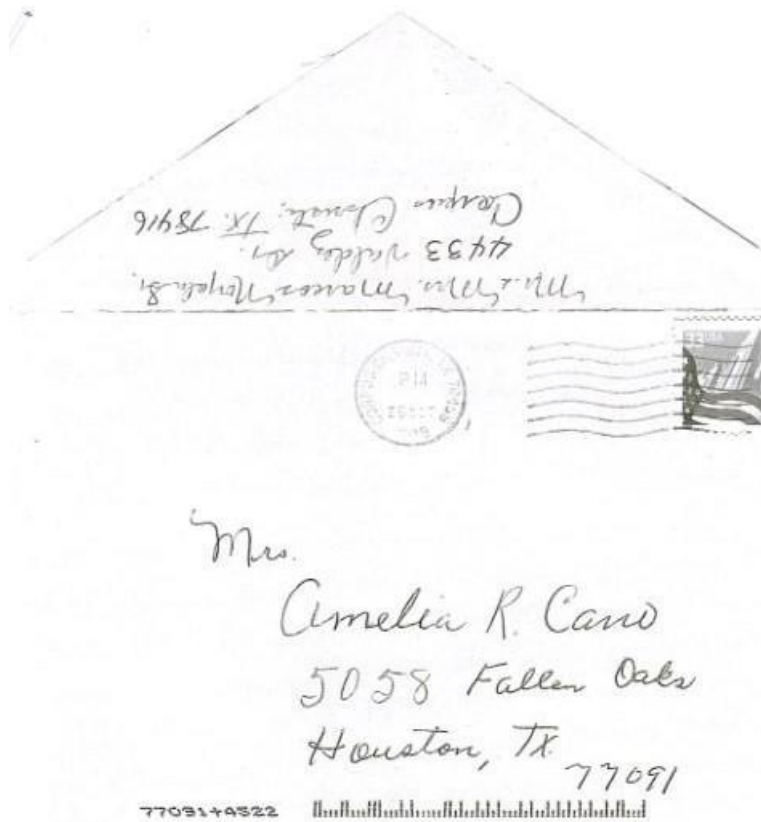 Mr. & Mrs. Marcos
4433 Valdez Dr.
Corpus Christi, TX. 78416
PM
Mrs.
Amelia R. Cano
5058 Fallen Oaks
Houston, TX
77091
77091+4522